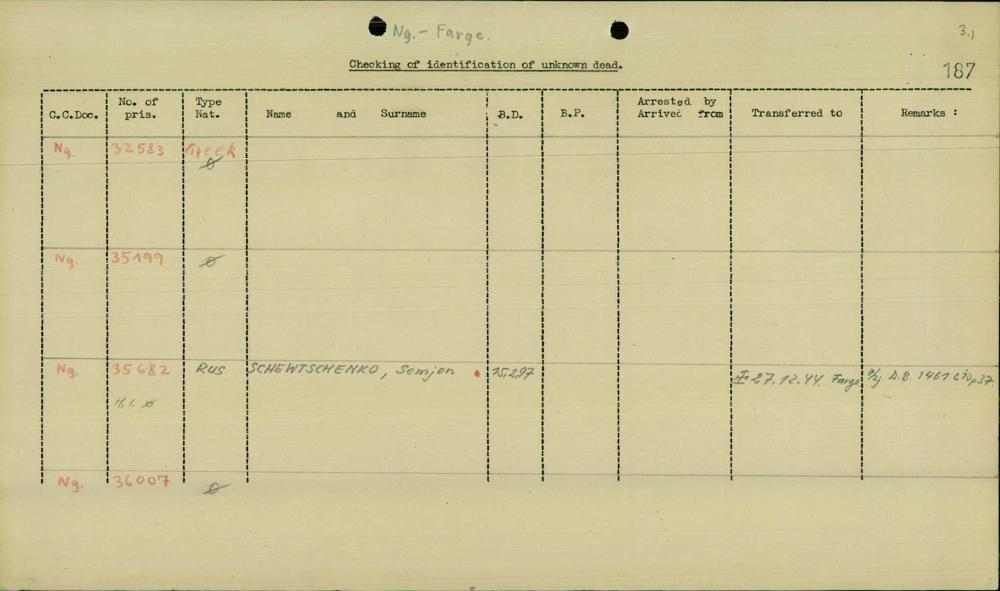 Ng.- Farge.
3.)
Checking of identification of unknown dead.
187
C.C.Doc. No. of pris. Type Nat. Name and Surname B.D. B.P. Arrested by Arrived from Transferred to Remarks :
Ng. 32583 Greek ∅
Ng. 35199 ∅
Ng. 35682 RUS SCHEWTSCHENKO, Semjon 15.2.97 27.12.44. Farge D.B. 1461 p37
H.I. ∅
Ng. 36007 ∅